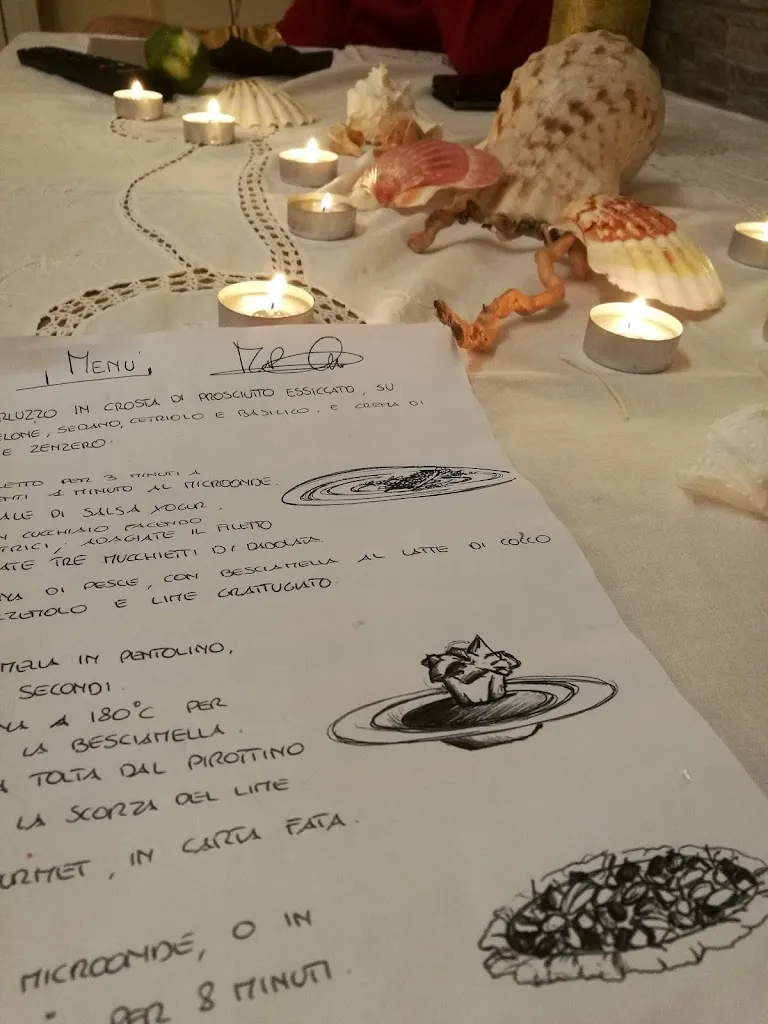 MENU
RLUZZO IN CROSTA DI PROSCIUTTO ESSICCATO, SU
ELONE, SEDANO, CETRIOLO E BASILICO. E CREMA DI
E ZENZERO.
LETTO PER 3 MINUTI A
ENTI A MINUTO AL MICROONDE.
ALE DI SALSA YOGUR.
N CUCCHIAIO FACENDO
TRICI, ADAGIATE IL FILETTO
ATE TRE MUCCHIETTI DI DADOLATA.
NA DI PESCE, CON BESCIAMELLA AL LATTE DI COCCO
ZZEMOLO E LIME GRATTUGIATO.
MELLA IN PENTOLINO,
SECONDI.
NA A 180°C PER
LA BESCIAMELLA.
A TOLTA DAL PIROTTINO
LA SCORZA DEL LIME
URMET, IN CARTA FATA.
MICROONDE, O IN
PER 8 MINUTI.